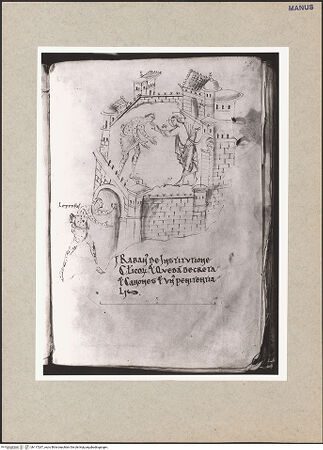 MANUS
Leprosus
RABAN' De INSTITUTIONE
CLICOR' ET QUEDA' DECRETA
ET CANONES ET UN' PENITENTIA
LIS